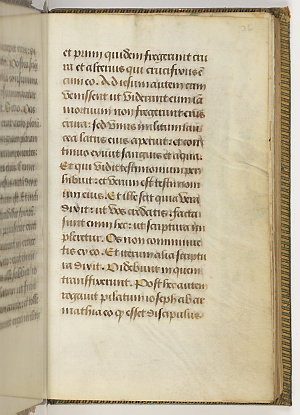 et primi quidem fregerunt cru
ra et alterius qui crucifixus ē
cum eo. Ad iesum autem cum
venissent ut viderunt eum ia
mortuum non fregerunt eius
crura: sed unus militum lan
cea latus eius aperuit: et con
tinuo exivit sanguis et aqua.
Et qui vidit testimonium per
hibuit: et verum est testimoni
um eius. Et ille scit quia vera
dixit: ut vos credatis. facta
sunt enim hec: ut scriptura im
pleretur. Os non comminue
tis ex eo. Et iterum alia scriptu
ra dixit. Videbunt in quem
transfixerunt. Post hec autem
rogavit pilatum ioseph abar
mathia eo q̄ esset discipulus